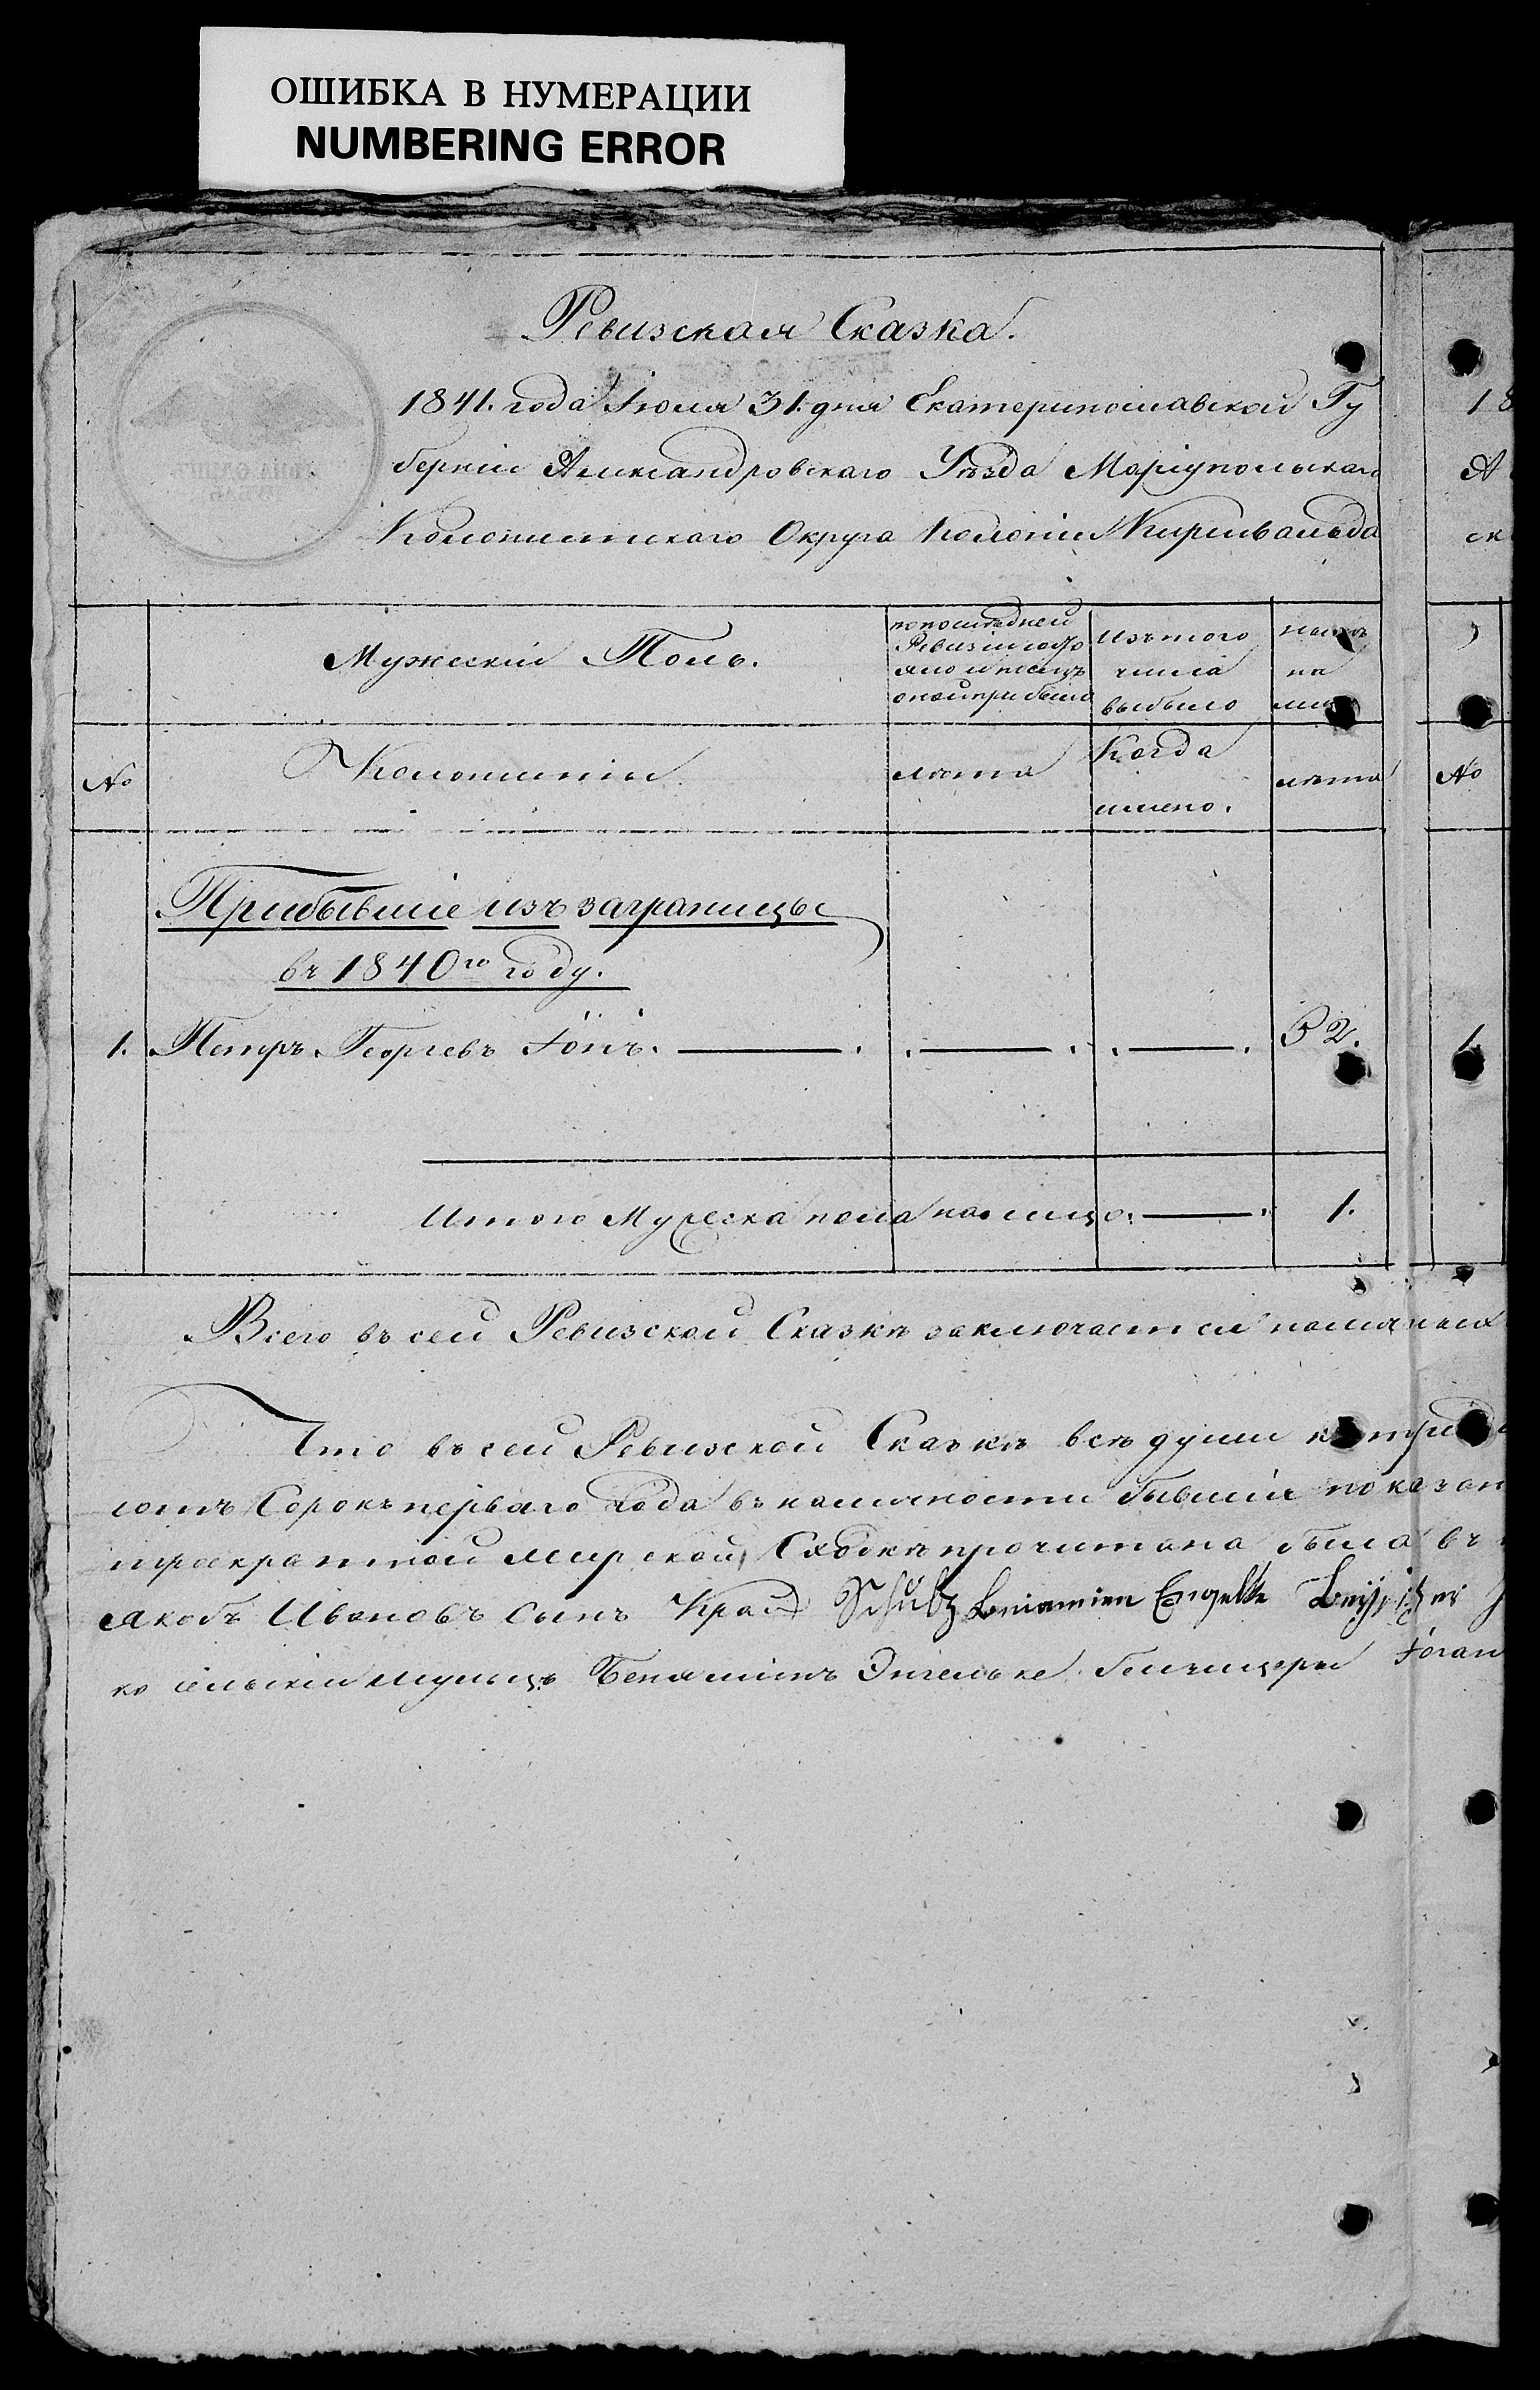 ОШИБКА В НУМЕРАЦИИ
NUMBERING ERROR
Ревизская Сказка.
1841. года Іюля 31. дня Екатеринославской Гу
берніи Александровскаго Уѣзда Маріупольскаго
Колонистскаго Округа Колоніи Киршвальда
18
А
ск
Мужескій Полъ.
по послѣдней
Ревизіи состо
яло и послѣ
оной прибыло
изъ того
числа
выбыло
на
№
Колонисты
лѣта
Когда
имено.
лѣта
№
Прибывшіе изъ заграницы
въ 1840го году.
1. Петръ Георгевъ Гöпъ. 52. 1.
Итого Мужеска пола на лицо. 1.
Всего въ сей Ревизской Сказкѣ заключается наличныхъ
Что въ сей Ревизской Сказкѣ всѣ души
сотъ Сорокъ перваго Года въ наличности бывшія показан
троекратной мирской Сходкѣ прочитана была въ
Якобъ Ивановъ Сынъ Schultz Beniamien Engelke
Беняминъ Энгельке Іоган